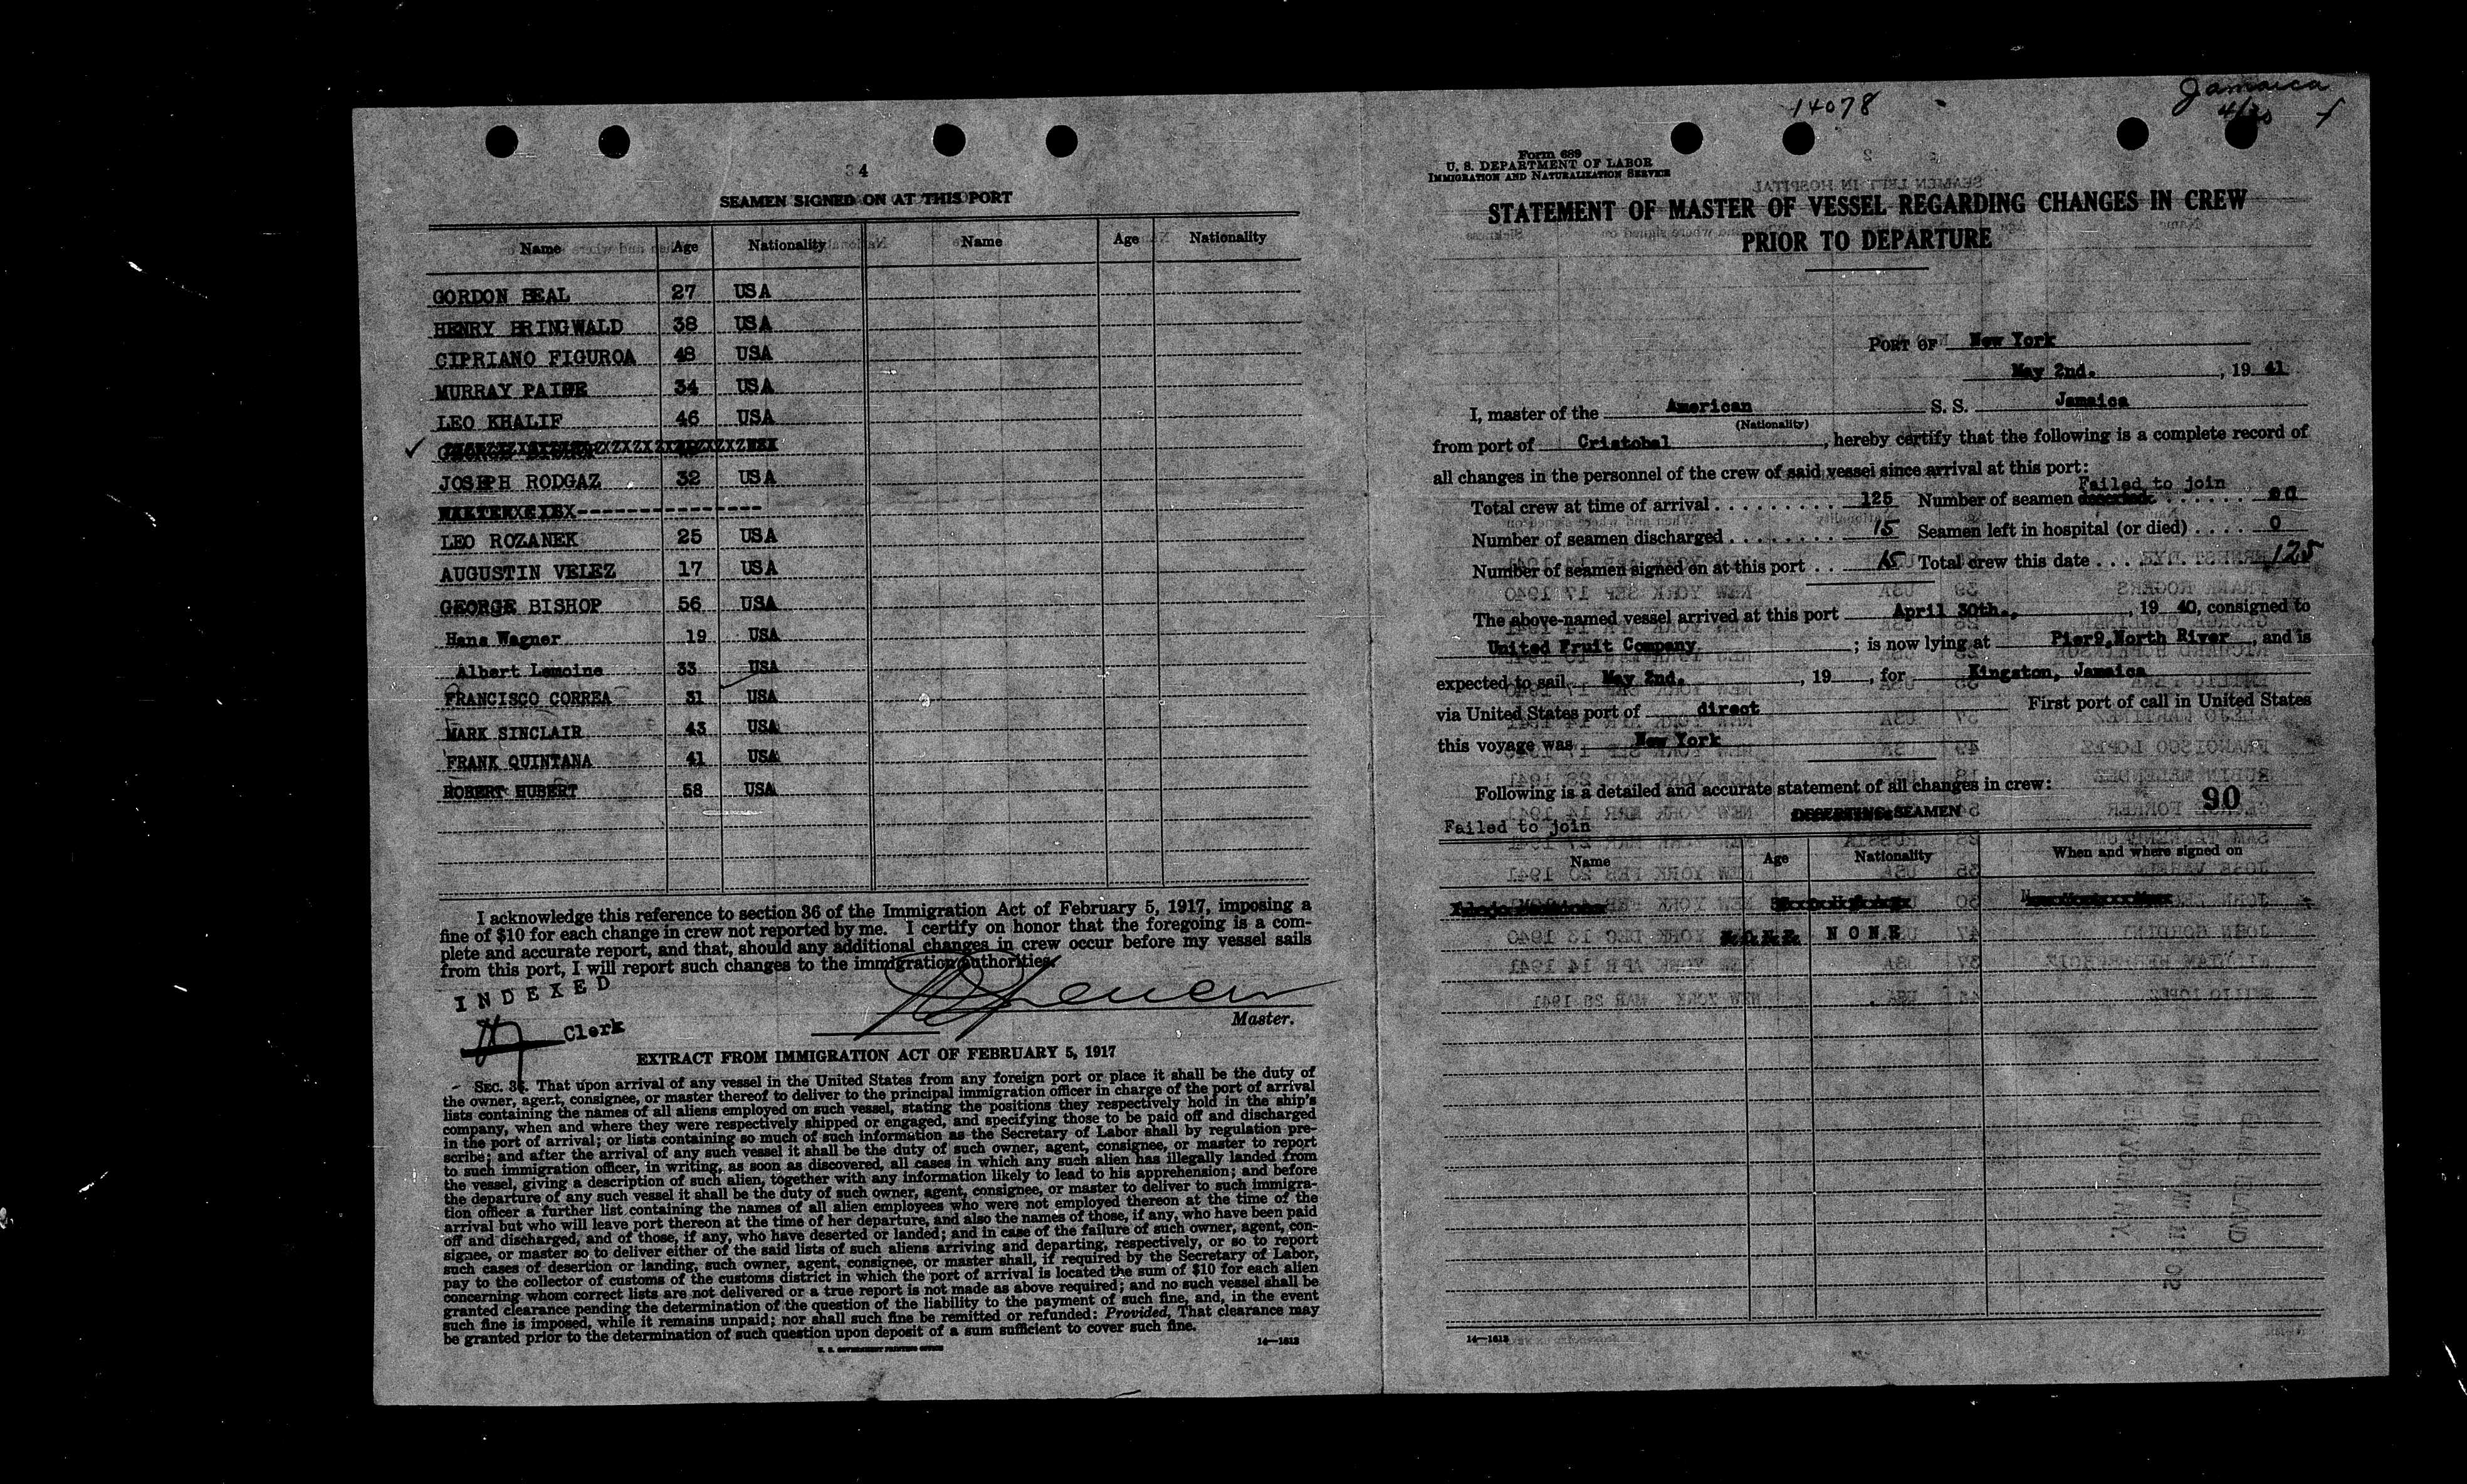 4
SEAMEN SIGNED ON AT THIS PORT
Name Age Nationality Name Age Nationality
GORDON BEAL 27 USA
HENRY BRINGWALD 38 USA
CIPRIANO FIGUROA 48 USA
MURRAY PAINE 34 USA
LEO KHALIF 46 USA
JOSEPH RODGAZ 32 USA
LEO ROZANEK 25 USA
AUGUSTIN VELEZ 17 USA
GEORGE BISHOP 56 USA
Hans Wagner 19 USA
Albert Lemoine 33 USA
FRANCISCO CORREA 31 USA
MARK SINCLAIR 43 USA
FRANK QUINTANA 41 USA
ROBERT HUBERT 58 USA
I acknowledge this reference to section 36 of the Immigration Act of February 5, 1917, imposing a
fine of $10 for each change in crew not reported by me. I certify on honor that the foregoing is a com-
plete and accurate report, and that, should any additional changes in crew occur before my vessel sails
from this port, I will report such changes to the immigration authorities.
INDEXED
Clerk
Master.
EXTRACT FROM IMMIGRATION ACT OF FEBRUARY 5, 1917
SEC. 36. That upon arrival of any vessel in the United States from any foreign port or place it shall be the duty of
the owner, agent, consignee, or master thereof to deliver to the principal immigration officer in charge of the port of arrival
lists containing the names of all aliens employed on such vessel, stating the positions they respectively hold in the ship's
company, when and where they were respectively shipped or engaged, and specifying those to be paid off and discharged
in the port of arrival; or lists containing so much of such information as the Secretary of Labor shall by regulation pre-
scribe; and after the arrival of any such vessel it shall be the duty of such owner, agent, consignee, or master to report
to such immigration officer, in writing, as soon as discovered, all cases in which any such alien has illegally landed from
the vessel, giving a description of such alien, together with any information likely to lead to his apprehension; and before
the departure of any such vessel it shall be the duty of such owner, agent, consignee, or master to deliver to such immigra-
tion officer a further list containing the names of all alien employees who were not employed thereon at the time of the
arrival but who will leave port thereon at the time of her departure, and also the names of those, if any, who have been paid
off and discharged, and of those, if any, who have deserted or landed; and in case of the failure of such owner, agent, con-
signee, or master so to deliver either of the said lists of such aliens arriving and departing, respectively, or so to report
such cases of desertion or landing, such owner, agent, consignee, or master shall, if required by the Secretary of Labor,
pay to the collector of customs of the customs district in which the port of arrival is located the sum of $10 for each alien
concerning whom correct lists are not delivered or a true report is not made as above required; and no such vessel shall be
granted clearance pending the determination of the question of the liability to the payment of such fine, and, in the event
such fine is imposed, while it remains unpaid; nor shall such fine be remitted or refunded: Provided, That clearance may
be granted prior to the determination of such question upon deposit of a sum sufficient to cover such fine.
U. S. GOVERNMENT PRINTING OFFICE 14—1613
14078
Jamaica
4/30
Form 689
U. S. DEPARTMENT OF LABOR
IMMIGRATION AND NATURALIZATION SERVICE
STATEMENT OF MASTER OF VESSEL REGARDING CHANGES IN CREW
PRIOR TO DEPARTURE
PORT OF New York
May 2nd. , 19 41
I, master of the American S. S. Jamaica
(Nationality)
from port of Cristobal , hereby certify that the following is a complete record of
all changes in the personnel of the crew of said vessel since arrival at this port:
Failed to join
Total crew at time of arrival 125 Number of seamen
Number of seamen discharged 15 Seamen left in hospital (or died) 0
Number of seamen signed on at this port 15 Total crew this date 125
The above-named vessel arrived at this port April 30th., , 19 40, consigned to
United Fruit Company ; is now lying at Pier9,North River , and is
expected to sail May 2nd. , 19 , for Kingston, Jamaica
via United States port of direct First port of call in United States
this voyage was New York
Following is a detailed and accurate statement of all changes in crew:
90
Failed to join SEAMEN
Name Age Nationality When and where signed on
N O N E
14—1613